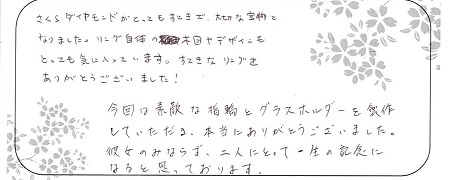 さくらダイヤモンドがとってもすてきで、大切な宝物と
なりました。リング自体の木目やデザインも
とっても気に入っています。すてきなリングを
ありがとうございました！
今回は素敵な指輪とグラスホルダーを製作
していただき、本当にありがとうございました。
彼女のみならず、二人にとって一生の記念に
なると思っております。